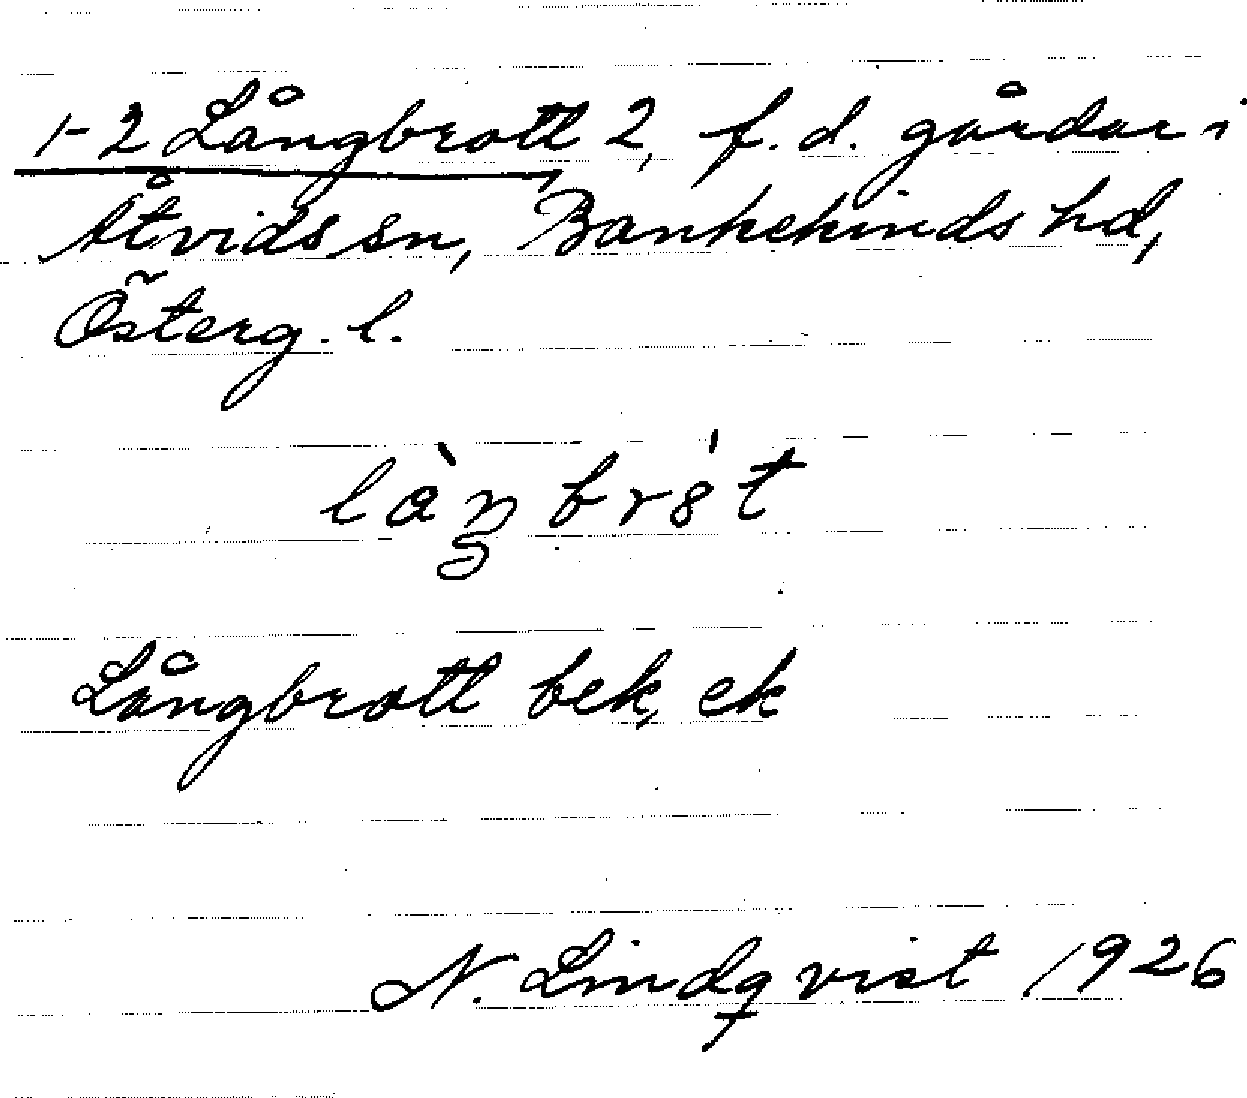 1-2 Långbrott, 2, f.d. gårdar i
Åtvids sn, Bankekinds hd,
Österg. l.
Långbrott bek, ek
N. Lindqvist 1926